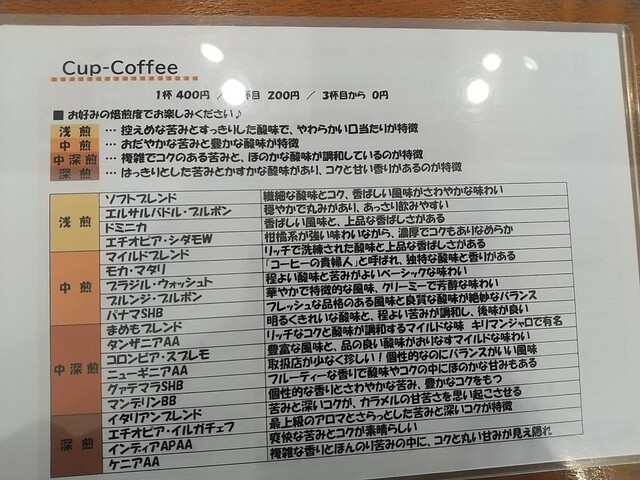 Cup-Coffee
1杯 400円 ／ 杯目 200円 ／ 3杯目から 0円
■ お好みの焙煎度でお楽しみください♪
浅煎 … 控えめな苦みとすっきりした酸味で、やわらかい口当たりが特徴
中煎 … おだやかな苦みと豊かな酸味が特徴
中深煎 … 複雑でコクのある苦みと、ほのかな酸味が調和しているのが特徴
深煎 … はっきりとした苦みとかすかな酸味があり、コクと甘い香りがあるのが特徴
浅煎
ソフトブレンド 繊細な酸味とコク、香ばしい風味がさわやかな味わい
エルサルバドル・ブルボン 穏やかで丸みがあり、あっさい飲みやすい
ドミニカ 香ばしい風味と、上品な香ばしさがある
エチオピア・シダモW 柑橘系が強い味わいながら、濃厚でコクもありなめらか
中煎
マイルドブレンド リッチで洗練された酸味と上品な香ばしさがある
モカ・マタリ 「コーヒーの貴婦人」と呼ばれ、独特な酸味と香りがある
ブラジル・ウォッシュト 程よい酸味と苦みがよいベーシックな味わい
ブルンジ・ブルボン 華やかで特徴的な風味、クリーミーで芳醇な味わい
パナマSHB フレッシュな品格のある風味と良質な酸味が絶妙なバランス
中深煎
まめもブレンド 明るくきれいな酸味と、程よい苦みが調和し、後味が良い
タンザニアAA リッチなコクと酸味が調和するマイルドな味 キリマンジャロで有名
コロンビア・スプレモ 豊富な風味と、品の良い酸味がおりなすマイルドな味わい
ニューギニアAA 取扱店が少なく珍しい！個性的なのにバランスがいい風味
グァテマラSHB フルーティーな香りで酸味やコクの中にほのかな甘みもある
マンデリンBB 個性的な香りとさわやかな苦み、豊かなコクをもつ
深煎
イタリアンブレンド 苦みと深いコクが、カラメルの甘苦さを思い起こさせる
エチオピア・イルガチェフ 最上級のアロマとさらっとした苦みと深いコクが特徴
インディアAPAA 爽快な苦みとコクが素晴らしい
ケニアAA 複雑な香りとほんのり苦みの中に、コクと丸い甘みが見え隠れ